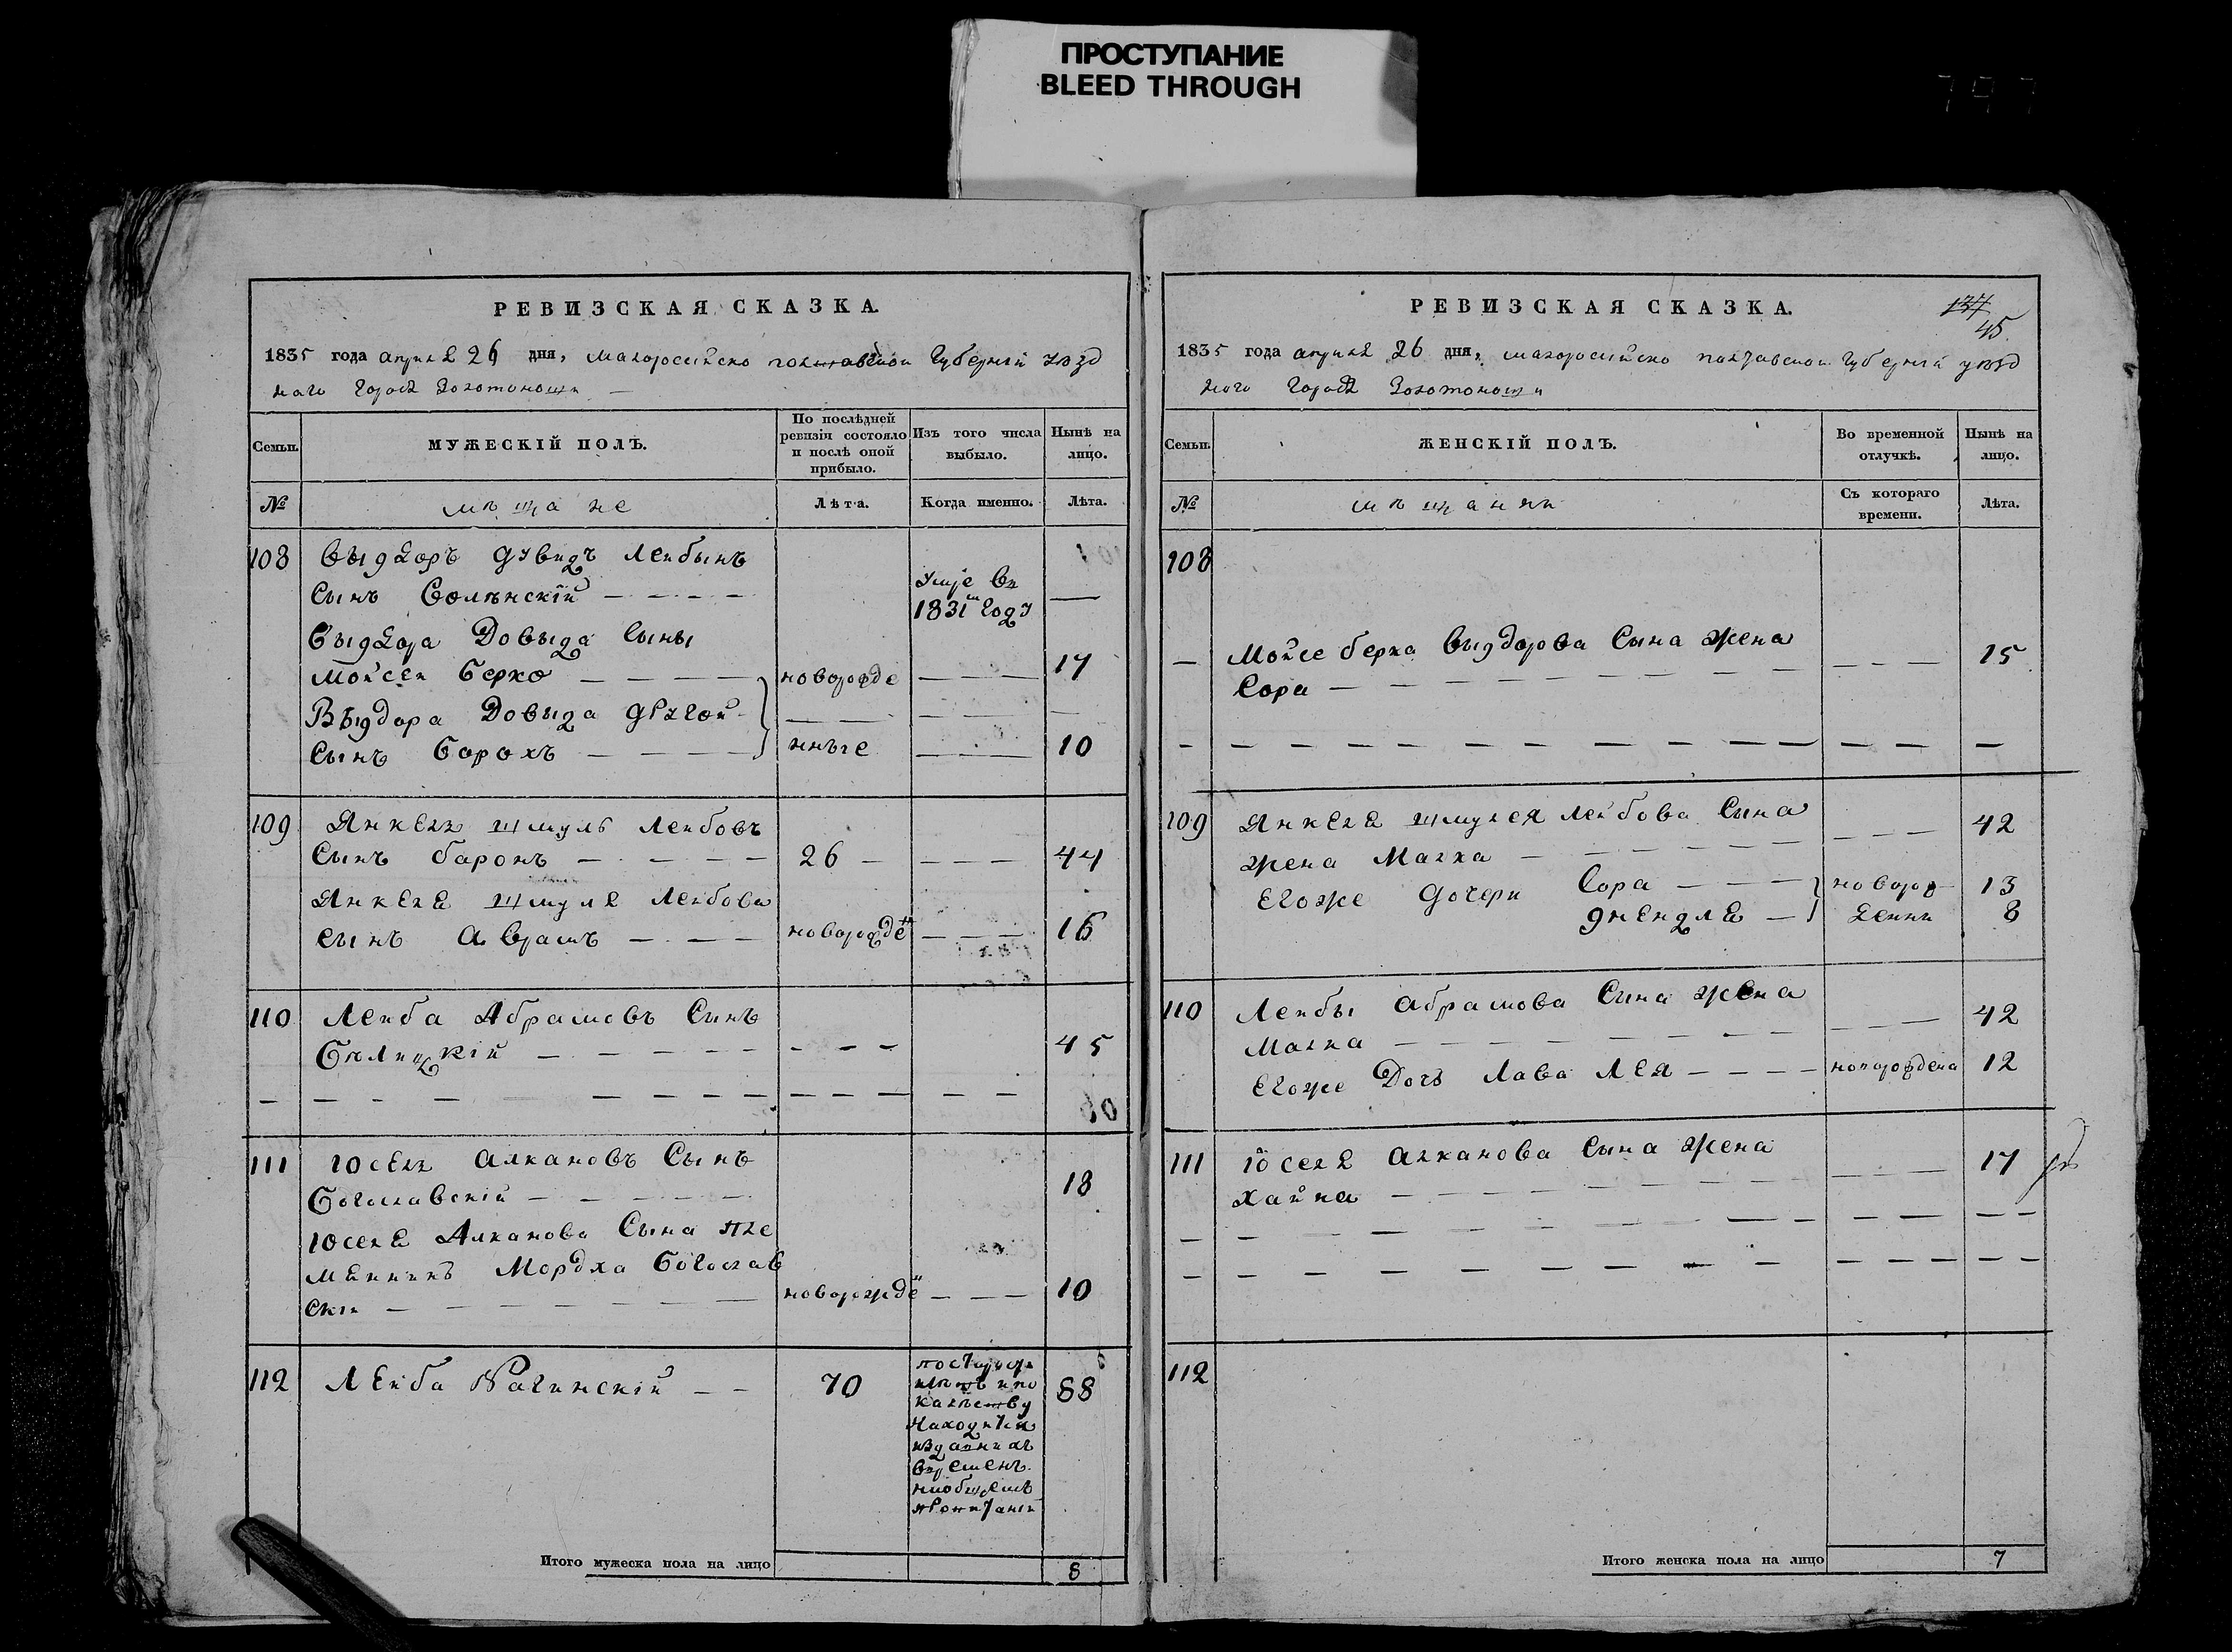 ПРОСТУПАНИЕ
BLEED THROUGH
РЕВИЗСКАЯ СКАЗКА.
1835 года апреля 26 дня, малоросийско полтавской Губернии уѣзд
наго Города Золотоноши
Семьи.
МУЖЕСКІЙ ПОЛЪ.
По послѣдней ревизіи состояло и послѣ оной прибыло.
Изъ того числа выбыло.
Нынѣ на лицо.
№
мѣщане
Лѣта.
Когда именно.
Лѣта.
108 Выдворъ Лейбынъ
Сынъ
1831 году
Выдвора Довыда Сыны
Мойсей Берко новорожде 17
Выдвора Довыда другой
Сынъ Борохъ нные 10
109 Янкель Шмуль Лейбовъ
Сынъ баронъ 26 44
Янкеля Шмуля Лейбова
Сынъ Аврамъ новорожде 16
110 Лейба Абрамовъ Сынъ
Бѣлицкій 45
111 Іосель Алкановъ Сынъ
Богославскій 18
Іоселя Алканова Сына пле
менникъ Мордха Богослав
скій новорожде 10
112 Лейба Рагинскій 70 88
по старости
лѣтъ и по
калѣству
находится
пропитаніи
Итого мужеска пола на лицо 8
РЕВИЗСКАЯ СКАЗКА.
137
45
1835 года апреля 26 дня, малоросийско полтавской Губернии уѣзд
наго Города Золотоноши
Семьи.
ЖЕНСКІЙ ПОЛЪ.
Во временной отлучкѣ.
Нынѣ на лицо.
№
мѣщанки
Съ котораго времени.
Лѣта.
108
Мойсе берка Выдворова Сына Жена
Сора 15
109 Янкеля Шмулея Лейбова Сына
жена Малка 42
Егоже дочери Сора новорож 13
Энендля денни 8
110 Лейбы Абрамова Сына Жена
Малка 42
Егоже Дочь Лея новорождена 12
111 Іоселя Алканова Сына Жена
Хайка 17
112
Итого женска пола на лицо 7